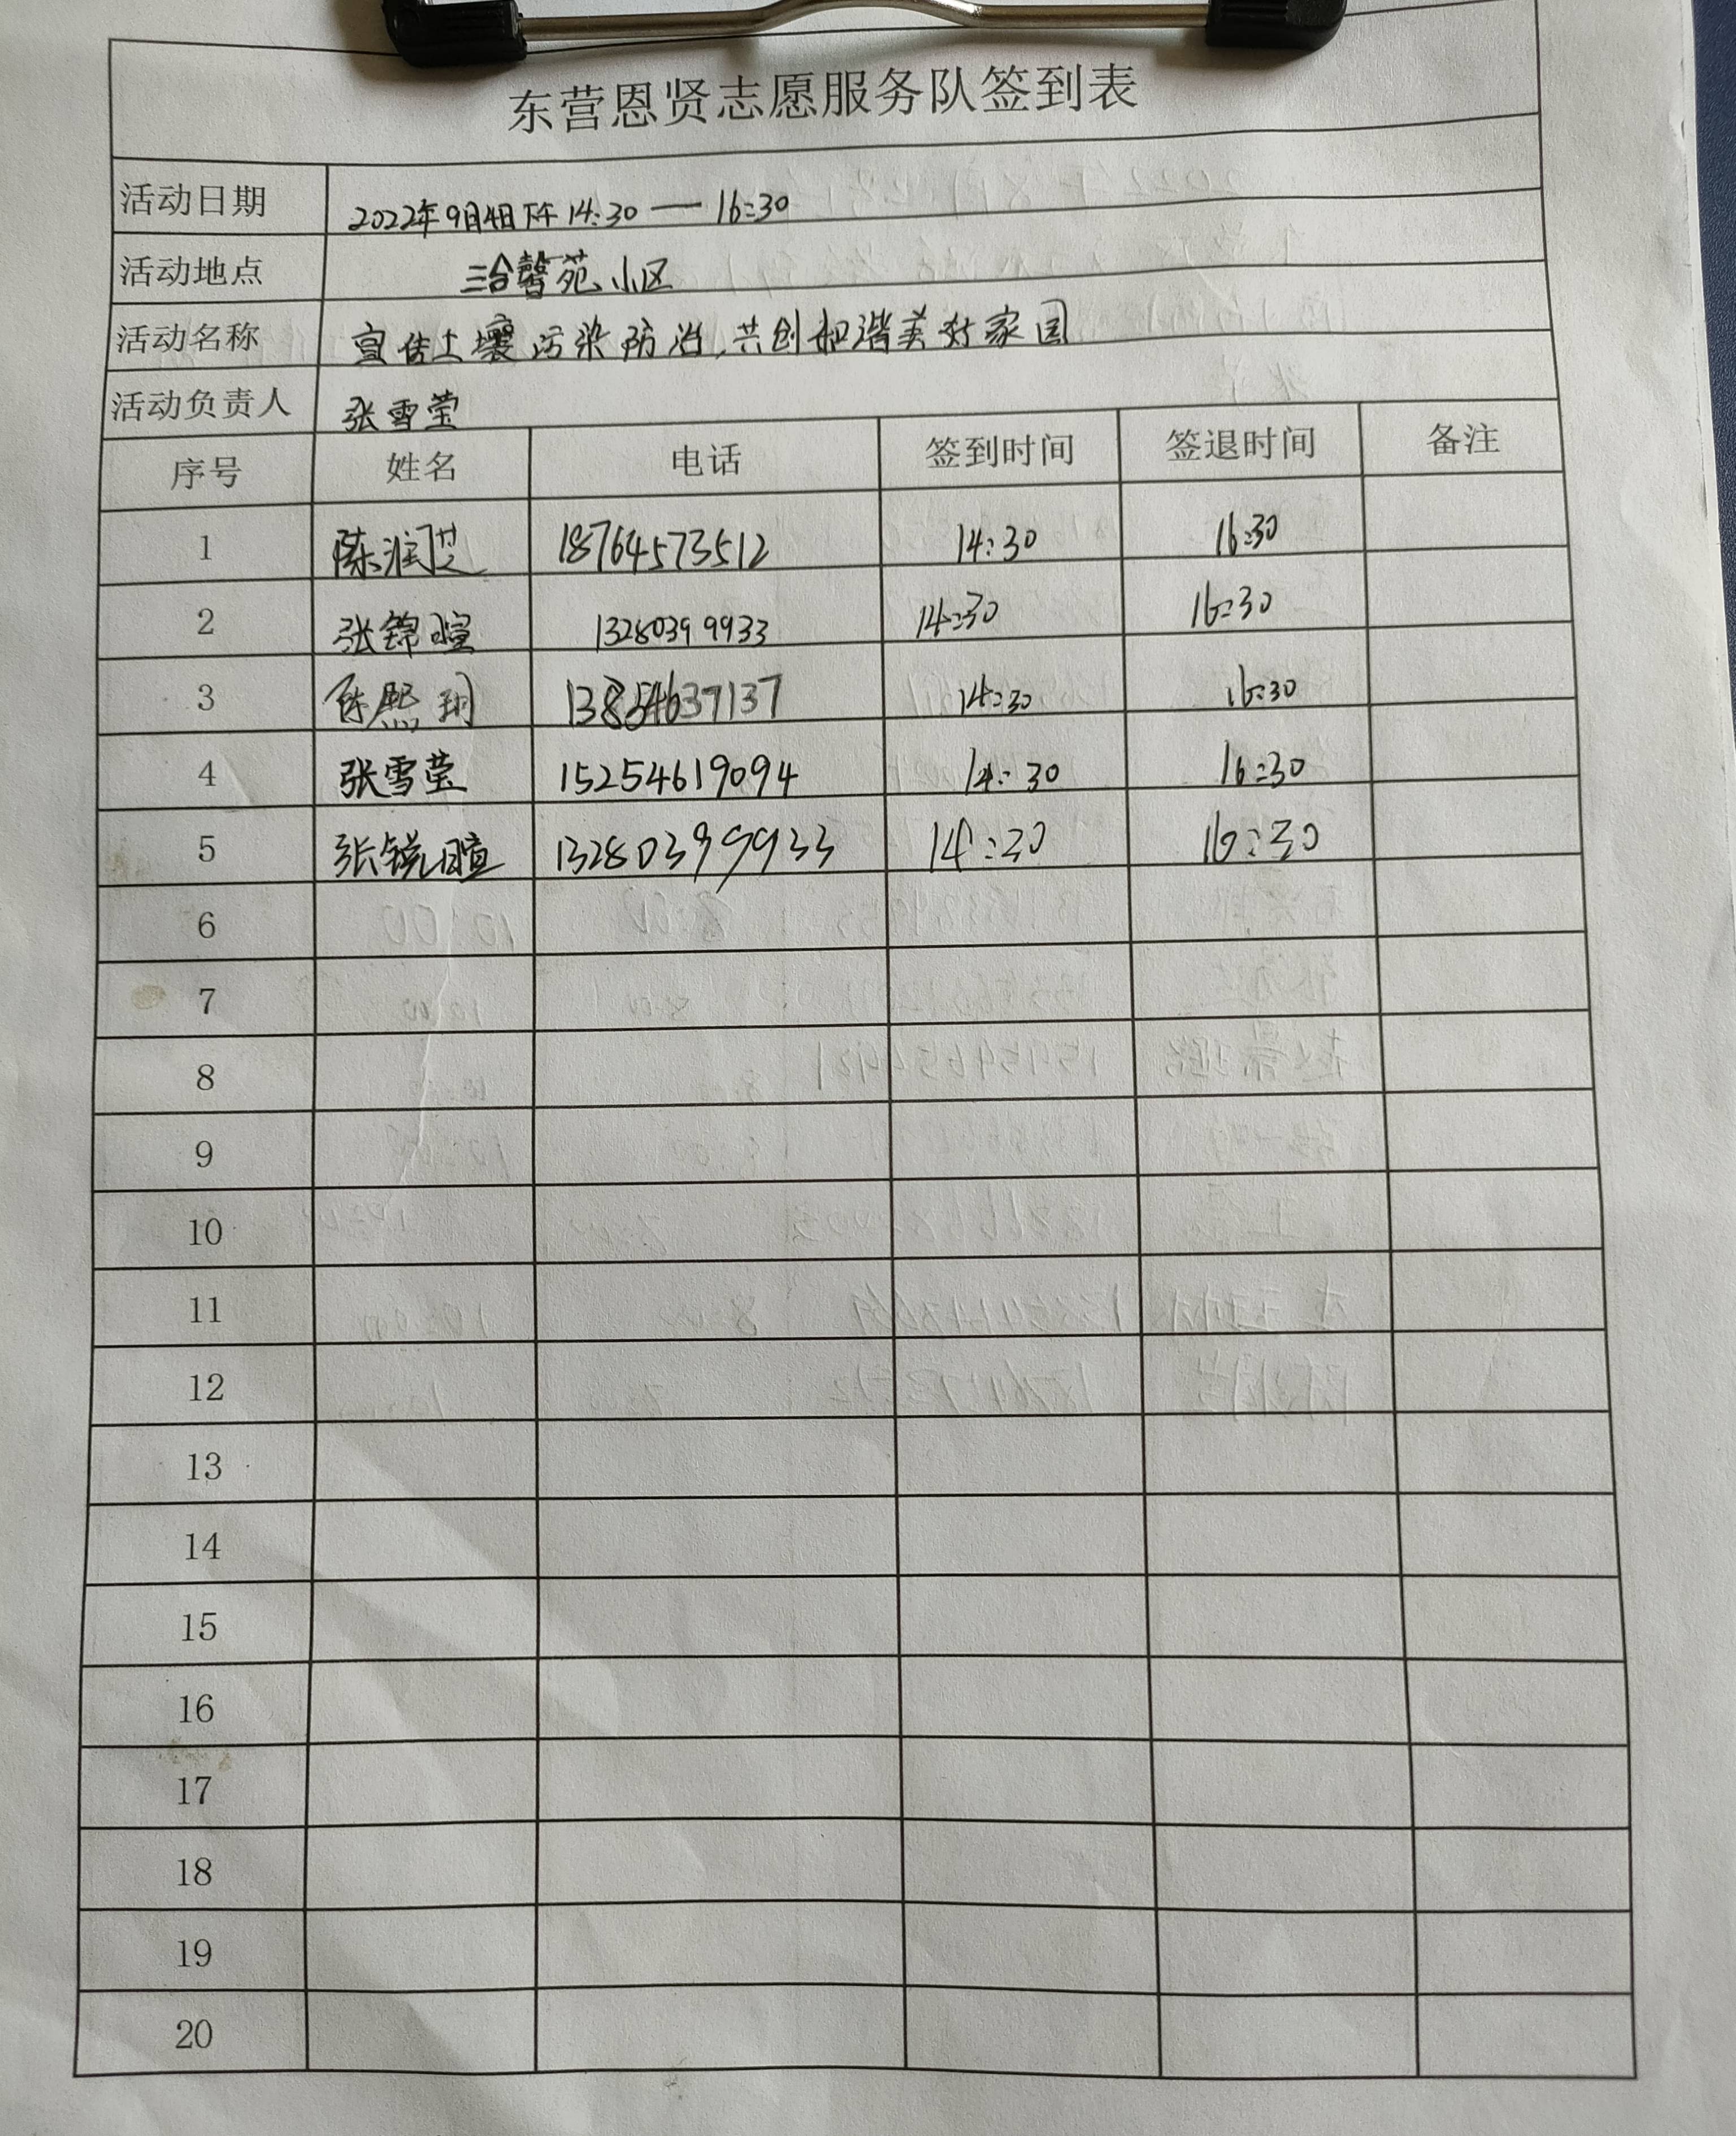 东营恩贤志愿服务队签到表
活动日期 2022年9月4日下午14:30—16:30
活动地点 三合馨苑小区
活动名称 宣传土壤污染防治,共创和谐美好家园
活动负责人 张雪莹
序号 姓名 电话 签到时间 签退时间 备注
1 陈润芝 18764573512 14:30 16:30
2 张锦暄 13280399933 14:30 16:30
3 陈熙玥 13854637137 14:30 16:30
4 张雪莹 15254619094 14:30 16:30
5 张锐暄 13280399933 14:30 16:30
6
7
8
9
10
11
12
13
14
15
16
17
18
19
20